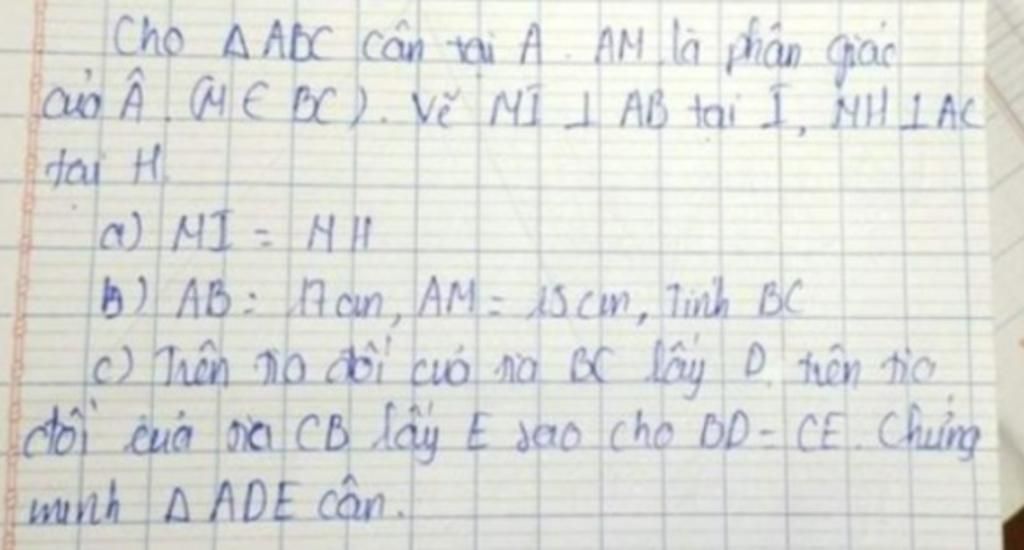 Cho Δ ABC cân tại A. AM là phân giác
của Â. (M ∈ BC). Vẽ MI ⊥ AB tại I, MH ⊥ AC
tại H.
a) MI = MH
b) AB = 17 cm, AM = 15 cm, Tính BC
c) Trên tia đối của tia BC lấy D, trên tia
đối của tia CB lấy E sao cho BD = CE. Chứng
minh Δ ADE cân.